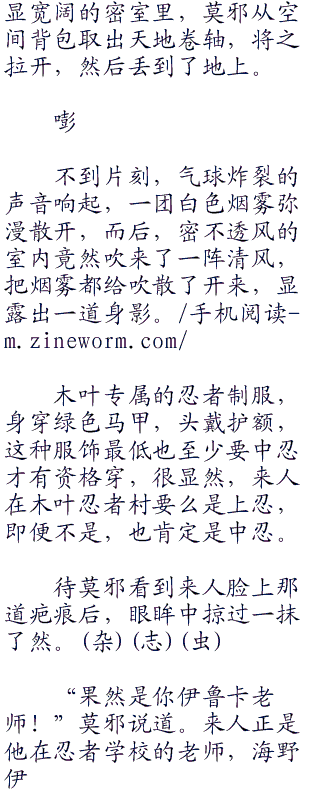 显宽阔的密室里，莫邪从空
间背包取出天地卷轴，将之
拉开，然后丢到了地上。
嘭
不到片刻，气球炸裂的
声音响起，一团白色烟雾弥
漫散开，而后，密不透风的
室内竟然吹来了一阵清风，
把烟雾都给吹散了开来，显
露出一道身影。/手机阅读-
m.zineworm.com/
木叶专属的忍者制服，
身穿绿色马甲，头戴护额，
这种服饰最低也至少要中忍
才有资格穿，很显然，来人
在木叶忍者村要么是上忍，
即便不是，也肯定是中忍。
待莫邪看到来人脸上那
道疤痕后，眼眸中掠过一抹
了然。(杂)(志)(虫)
“果然是你伊鲁卡老
师！”莫邪说道。来人正是
他在忍者学校的老师，海野
伊